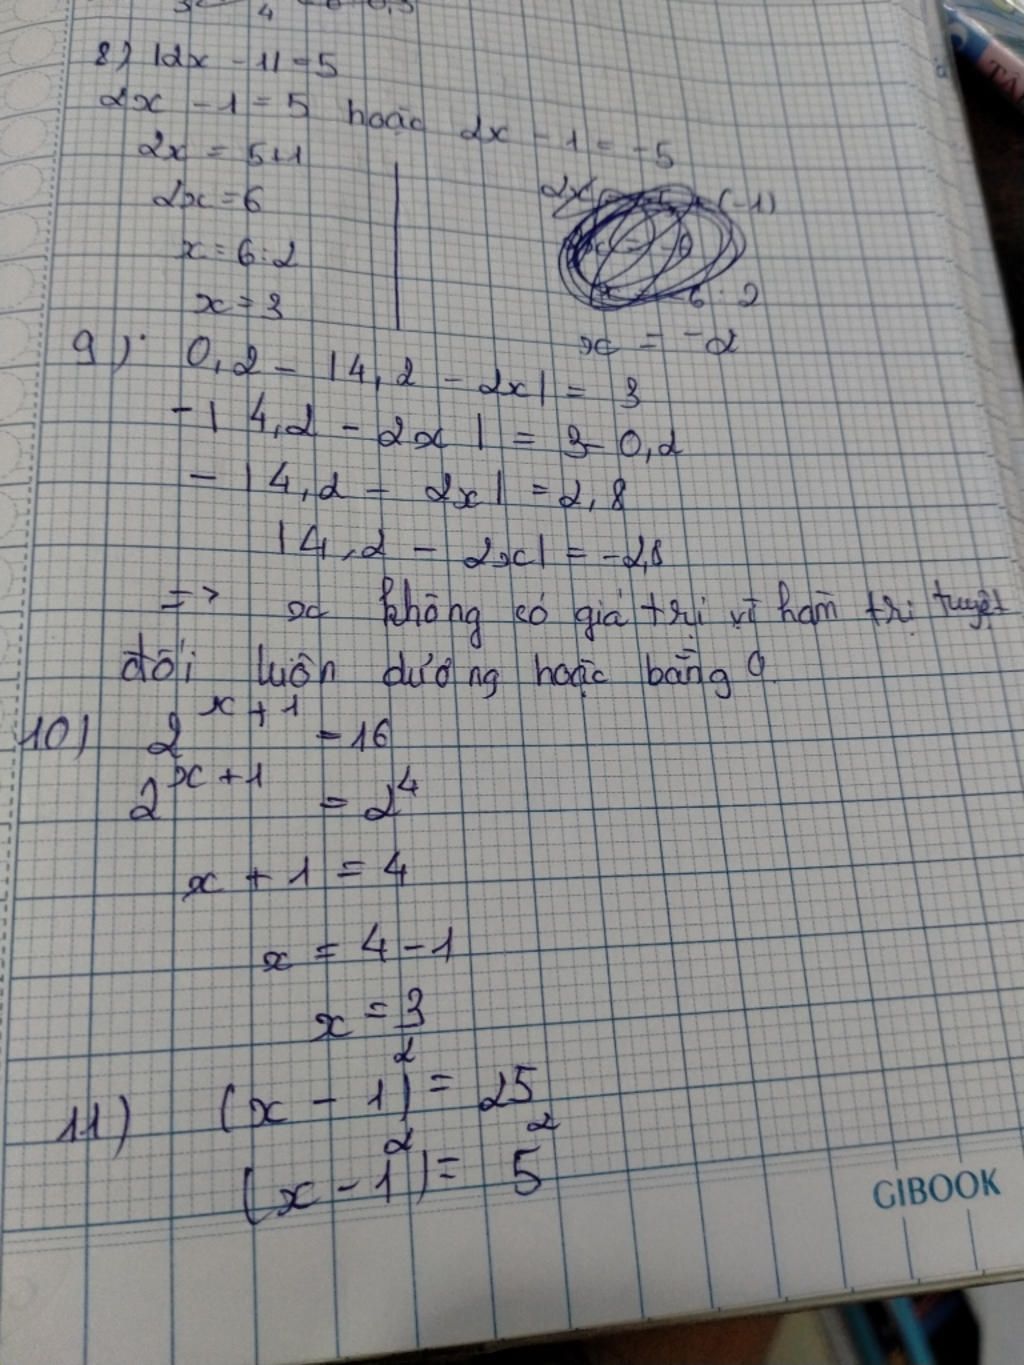 8) |2x - 1| = 5
2x - 1 = 5 hoặc 2x - 1 = -5
2x = 5+1
2x = 6
x = 6 : 2
x = 3
2x (-1)
6 : 2
x = -2
9) 0,2 - |4,2 - 2x| = 3
-|4,2 - 2x| = 3-0,2
-|4,2 - 2x| = 2,8
|4,2 - 2x| = -2,8
=> x không có giá trị vì hạm trị tuyệt
đối luôn dương hoặc bằng 0.
10) 2^{x+1} = 16
2^{x+1} = 2^4
x + 1 = 4
x = 4 - 1
x = 3
11) (x - 1)^2 = 25
(x - 1)^2 = 5^2
GIBOOK